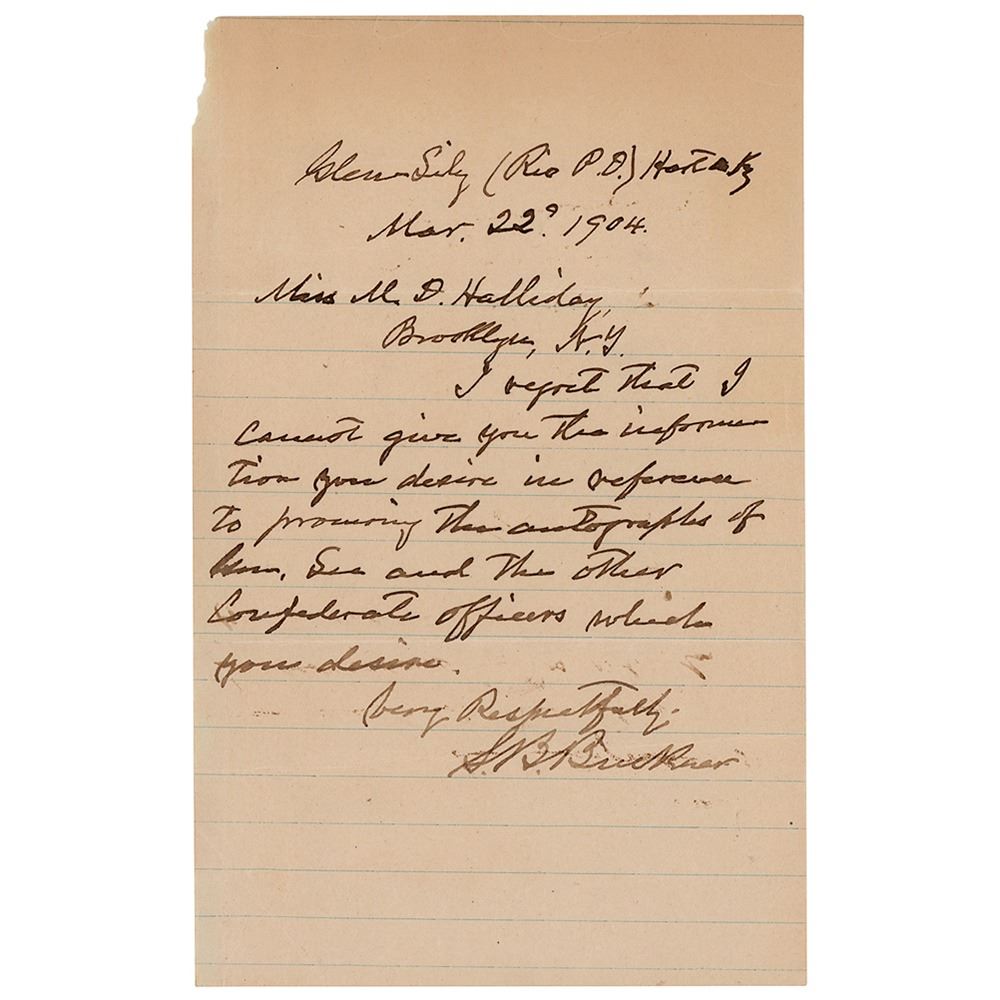 Glen Lily (Rio P.O.) Hart Co Ky
Mar. 22d. 1904.
Miss M. D. Halliday,
Brooklyn, N.Y.
I regret that I
cannot give you the informa
tion you desire in reference
to procuring the autographs of
Gen. Lee and the other
Confederate officers which
you desire.
Very Respectfully.
S. B. Buckner